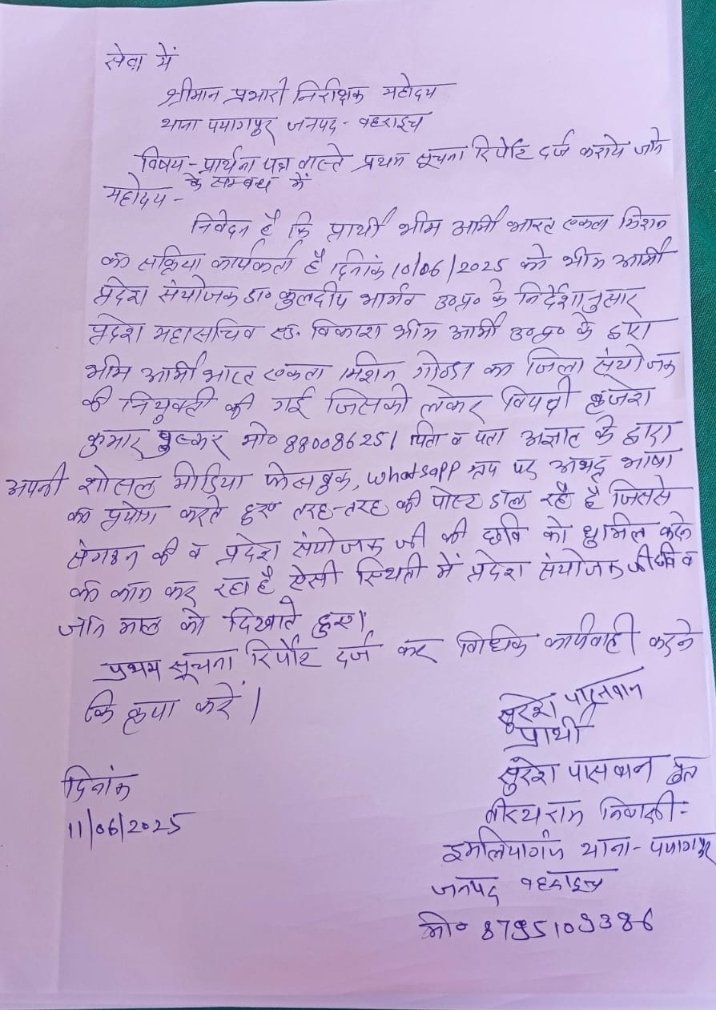 सेवा में
श्रीमान प्रभारी निरीक्षक महोदय
थाना पयागपुर जनपद - बहराइच
विषय - प्रार्थना पत्र वास्ते प्रथम सूचना रिपोर्ट दर्ज कराये जाने
के सम्बन्ध में
महोदय -
निवेदन है कि प्रार्थी भीम आर्मी भारत एकता मिशन
का सक्रिया कार्यकर्ता है दिनांक 10/06/2025 को भीम आर्मी
प्रदेश संयोजक डा० कुलदीप भार्गव उ०प्र० के निर्देशानुसार
प्रदेश महासचिव एड. विकाश भीम आर्मी उ०प्र० के द्वारा
भीम आर्मी भारत एकता मिशन गोण्डा का जिला संयोजक
की नियुक्ती की गई जिसको लेकर विपक्षी
कुमार पुष्कर मो० 880086251 पिता व पता अज्ञात के द्वारा
अपनी शोसल मीडिया फेसबुक, whatsapp ग्रुप पर अभद्र भाषा
का प्रयोग करते हुए तरह-तरह की पोस्ट डाल रहे है जिससे
संगठन की व प्रदेश संयोजक जी की छवि को धुमिल करने
का काम कर रहा है ऐसी स्थिती में प्रदेश संयोजक की छवि व
जान माल को दिखाते हुए।
प्रथम सूचना रिपोर्ट दर्ज कर विधिक कार्यवाही करने
कि कृपा करें।
सुरेश पासवान
प्रार्थी
सुरेश पासवान
दिनांक
11/06/2025
तीरथराम निवासी :-
इमलियागंज थाना - पयागपुर
जनपद बहराइच
मो० 8795109386